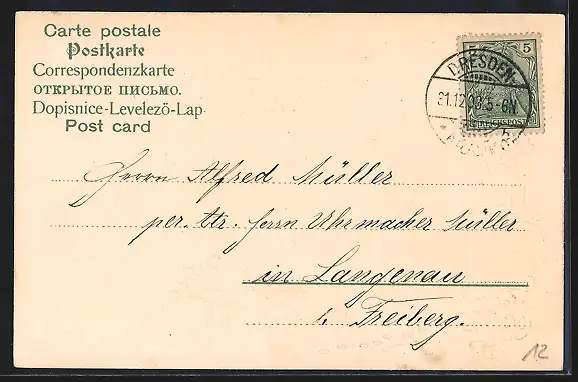 Carte postale
Postkarte
Correspondenzkarte
ОТКРЫТОЕ ПИСЬМО.
Dopisnice-Levelező-Lap
Post card
5 5
REICHSPOST
DRESDEN-
5-6N
Herrn Alfred Müller
per. Adr. Herrn Uhrmacher Müller
in Langenau
b. Freiberg.
12